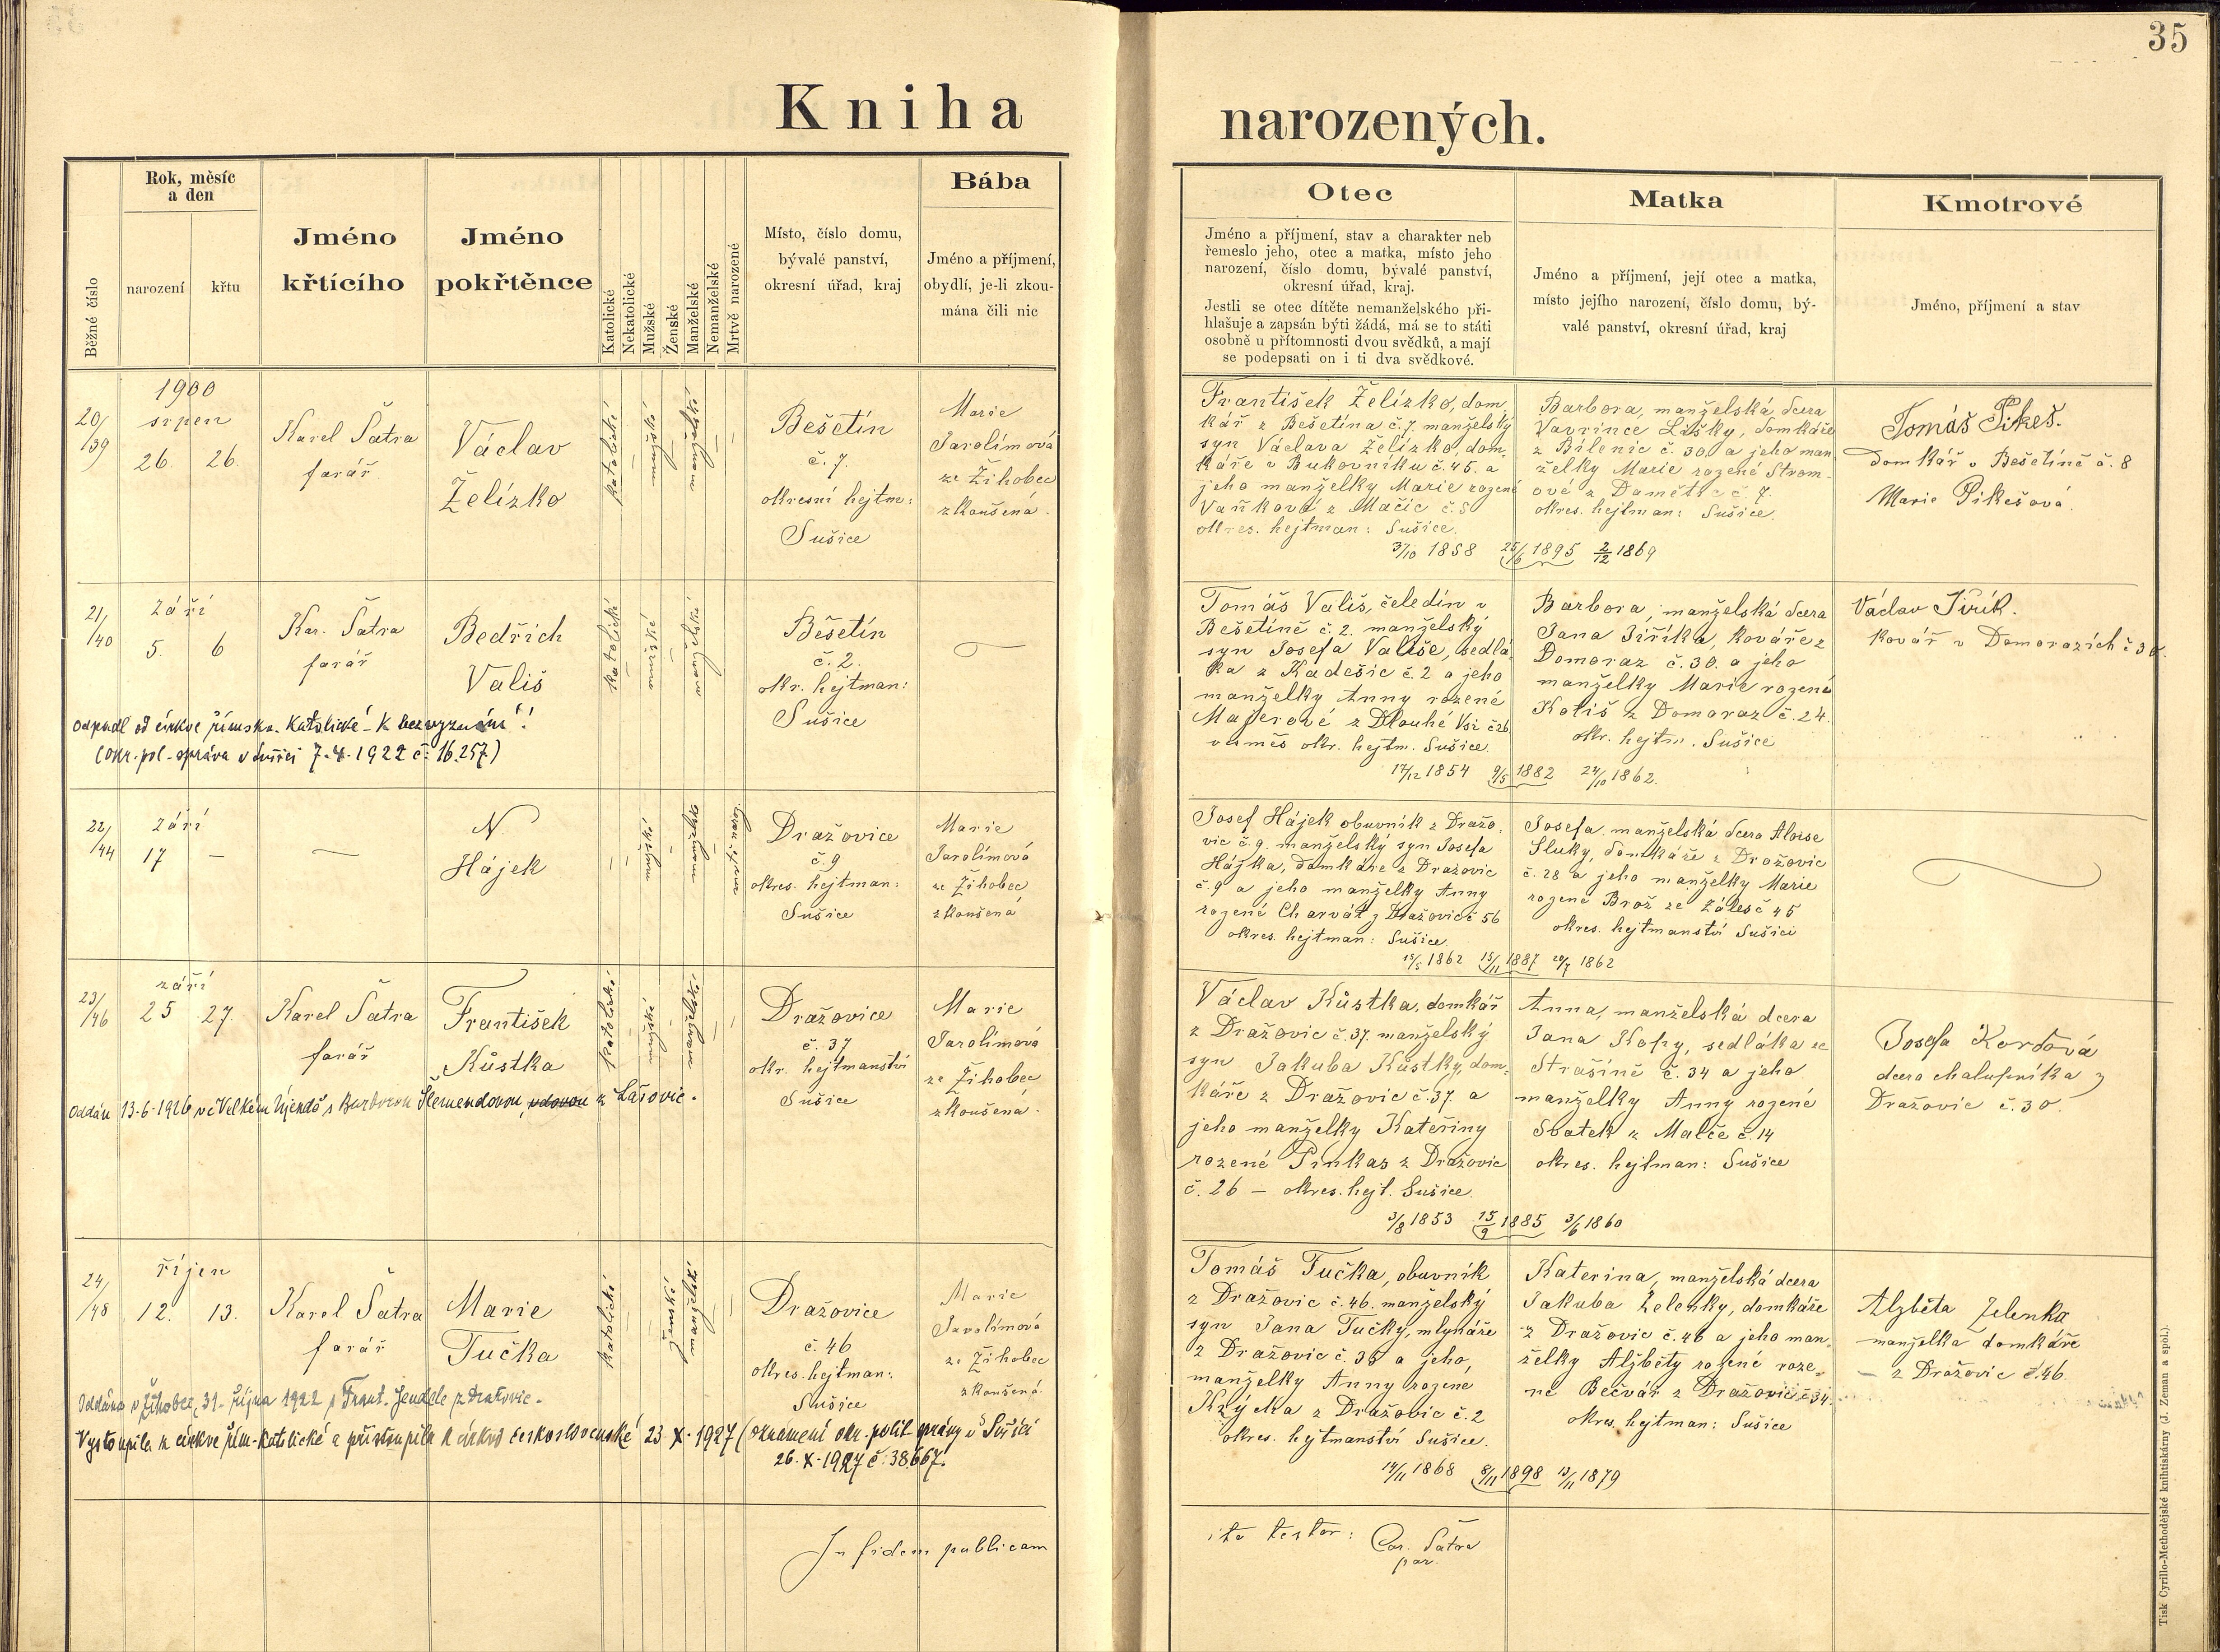 35
Kniha
narozených.
Běžné číslo
Rok, měsíc
a den
narození
křtu
Jméno
křtícího
Jméno
pokřtěnce
Katolické
Nekatolické
Mužské
Ženské
Manželské
Nemanželské
Mrtvě narozené
Místo, číslo domu,
bývalé panství,
okresní úřad, kraj
Bába
Jméno a příjmení,
obydlí, je-li zkou-
mána čili nic
Otec
Jméno a příjmení, stav a charakter neb
řemeslo jeho, otec a matka, místo jeho
narození, číslo domu, bývalé panství,
okresní úřad, kraj.
Jestli se otec dítěte nemanželského při-
hlašuje a zapsán býti žádá, má se to státi
osobně u přítomnosti dvou svědků, a mají
se podepsati on i ti dva svědkové.
Matka
Jméno a příjmení, její otec a matka,
místo jejího narození, číslo domu, bý-
valé panství, okresní úřad, kraj
Kmotrové
Jméno, příjmení a stav
20/39
1900
srpen
26. 26.
Karel Šatra
farář
Václav
Želízko
katolické
mužské
manželské
Bešetín
č. 7.
okresní hejtm:
Sušice
Marie
Jarolímová
ze Žihobec
zkoušená.
František Želízko, dom
kář z Bešetína č. 7. manželský
syn Václava Želízko, dom,
káře v Bukovníku č. 45. a
jeho manželky Marie rozené
Vaňkové z Mačic č. 5
okres. hejtman: Sušice.
3/10 1858 25/6 1895 2/12 1869
Barbora, manželská dcera
Vavřince Lišky, domkáře
z Bílenic č. 30 a jeho man
želky Marie rozené Strom-
ové z Damětic č. 7.
okres. hejtman: Sušice.
Tomáš Pikeš.
domkář v Bešetíně č. 8
Marie Pikešová.
21/40
září
5. 6
Kar. Šatra
farář
Bedřich
Vališ
katolické
mužské
manželské
Běšetín
č. 2.
okr. hejtman:
Sušice
Odpadl od církve římsko-katolické - k bezvyznání!
(Okr. pol. správa v Sušici 7.4.1922 č: 16.257)
Tomáš Vališ, čeledín v
Bešetíně č. 2. manželský
syn Josefa Vališe, sedlá
ka z Kadešic č. 2 a jeho
manželky Anny rozené
Majerové z Dlouhé Vsi č 26
okr. hejtm. Sušice.
17/12 1854 9/5 1882 24/10 1862.
Barbora, manželská dcera
Jana Jiříka, kováře z
Domoraz č. 30. a jeho
manželky Marie rozené
Kališ z Domoraz č. 24.
okr. hejtm. Sušice
Václav Jiřík.
kovář v Domorazích č 30.
22/44
září
17 —
N.
Hájek
mužské
manželské
Dražovice
č. 9
okres. hejtman:
Sušice
Marie
Jarolímová
ze Žihobec
zkoušená
Josef Hájek obuvník z Dražo,
vic č. 9. manželský syn Josefa
Hájka, domkáře z Dražovic
č. 9 a jeho manželky Anny
rozené Charvát z Dražovic č 56
okres. hejtman: Sušice.
15/5 1862 15/11 1887 20/7 1862
Josefa, manželská dcera Aloise
Sluky, domkáře z Dražovic
č. 28 a jeho manželky Marie
rozené Brož ze Záles č 45
okres. hejtmanství Sušici
23/46
září
25 27.
Karel Šatra
farář
František
Kůstka
katolické
mužské
manželské
Dražovice
č. 37
okr. hejtmanství
Sušice
Marie
Jarolímová
ze Žihobec
zkoušená.
Oddán 13.6.1926 ve Velkém Újezdě s Barborou Šlemendovou, vdovou z Lažovic.
Václav Kůstka, domkář
z Dražovic č. 37. manželský
syn Jakuba Kůstky, dom-
káře z Dražovic č. 37. a
jeho manželky Kateřiny
rozené Pinkas z Dražovic
č. 26 – okres. hejt. Sušice.
3/8 1853 15/9 1885 3/6 1860
Anna, manželská dcera
Jana Kopy, sedláka ze
Strašíně č. 34 a jeho
manželky Anny rozené
Sbatek z Malče č. 14
okres. hejtman: Sušice
Josefa Korďová
dcera chalupníka z
Dražovic č. 30.
24/48
říjen
12. 13.
Karel Šatra
farář
Marie
Tučka
katolické
ženské
manželské
Dražovice
č. 46
okres. hejtman:
Sušice
Marie
Jarolímová
ze Žihobec
zkoušená
Oddána v Žihobci, 31. října 1922 s Frant. Jendele z Dražovic.
Vystoupila z církve řím-katolické a přistoupila k církvi československé 23.X.1927 (oznámení okr. polit správy v Sušici
26.X.1927 č: 38.667.
Tomáš Tučka, obuvník
z Dražovic č. 46. manželský
syn Jana Tučky, mlynáře
z Dražovic č. 38 a jeho,
manželky Anny rozené
Krýcka z Dražovic č. 2
okres. hejtmanství Sušice.
14/11 1868 8/11 1898 13/11 1879
Katerina, manželská dcera
Jakuba Zelenky, domkáře
z Dražovic č. 46 a jeho man,
želky Alžběty rozené roze-
né Bečvář z Dražovic č. 34.
okres. hejtman: Sušice
Alžběta Zelenka
manželka domkáře
z Dražovic č. 46.
In fidem publicam
ita testor: Car. Šatra
par.
Tisk Cyrillo-Methodějské knihtiskárny (J. Zeman a spol.).